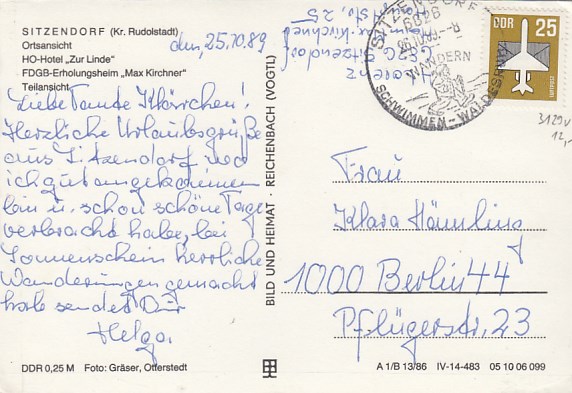 SITZENDORF (Kr. Rudolstadt)
Ortsansicht
HO-Hotel „Zur Linde"
FDGB-Erholungsheim „Max Kirchner"
Teilansicht
den, 25.10.89
Liebe Tante Klärchen!
Herzliche Urlaubsgrüße
aus Sitzendorf wo
ich gut angekommen
bin u. schon schöne Tage
verbracht habe, bei
Sonnenschein herrliche
Wanderungen gemacht
hab sendet Dir
Helga
DDR 0,25 M Foto: Gräser, Otterstedt
BILD UND HEIMAT · REICHENBACH (VOGTL)
Sitzendorf
SITZENDORF
6428
26.10.89.-8
WANDERN
SCHWIMMEN - WA
DDR 25
LUFTPOST
3129v
12,-
Frau
Klara Hämling
1000 Berlin 44
Pflügerstr. 23
A 1/B 13/86 IV-14-483 05 10 06 099